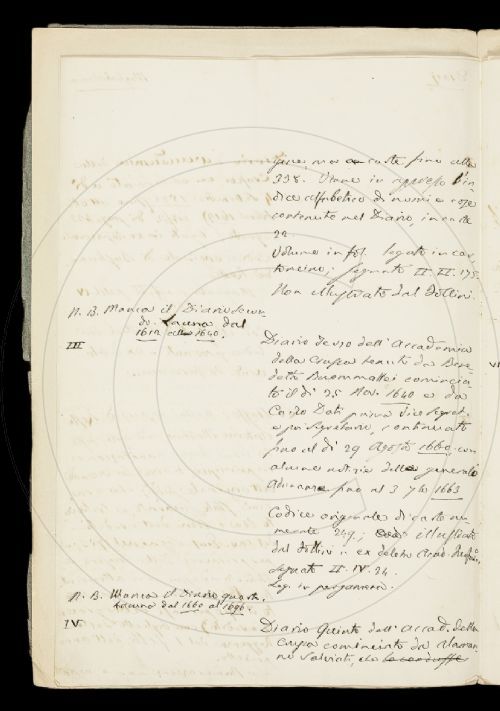 gine, ma carte fino alla
338. Viene in appresso l'in
dice alfabetico di nomi e cose
contenute nel Diario, in carte
22
Volume in fol. legato in car
toncino; segnato II. II. 175
Non illustrato dal Follini.
N. B. Manca il Diario secon
do. Lacuna dal
1612 al 1640.
III
Diario terzo dell'Accademia
della Crusca tenuto da Bene-
detto Buommattei comincia
to il dì 25 Nov. 1640 e da
Carlo Dati prima Vice Segret.
e poi Segretario, continuato
fino al dì 29 Agosto 1660 con
alcune notizie delle generali
Adunanze fino al 3 7bre 1663
Codice originale di carte nu
merate 249; illustrato
dal Follini
segnato II. IV. 24.
Leg. in pergamena.
N. B. Manca il Diario quarto,
lacuna dal 1660 al 1696.
IV
Diario Quinto dell'Accad. della
Crusca cominciato da Alaman
no Salviati, che lo condusse
VI